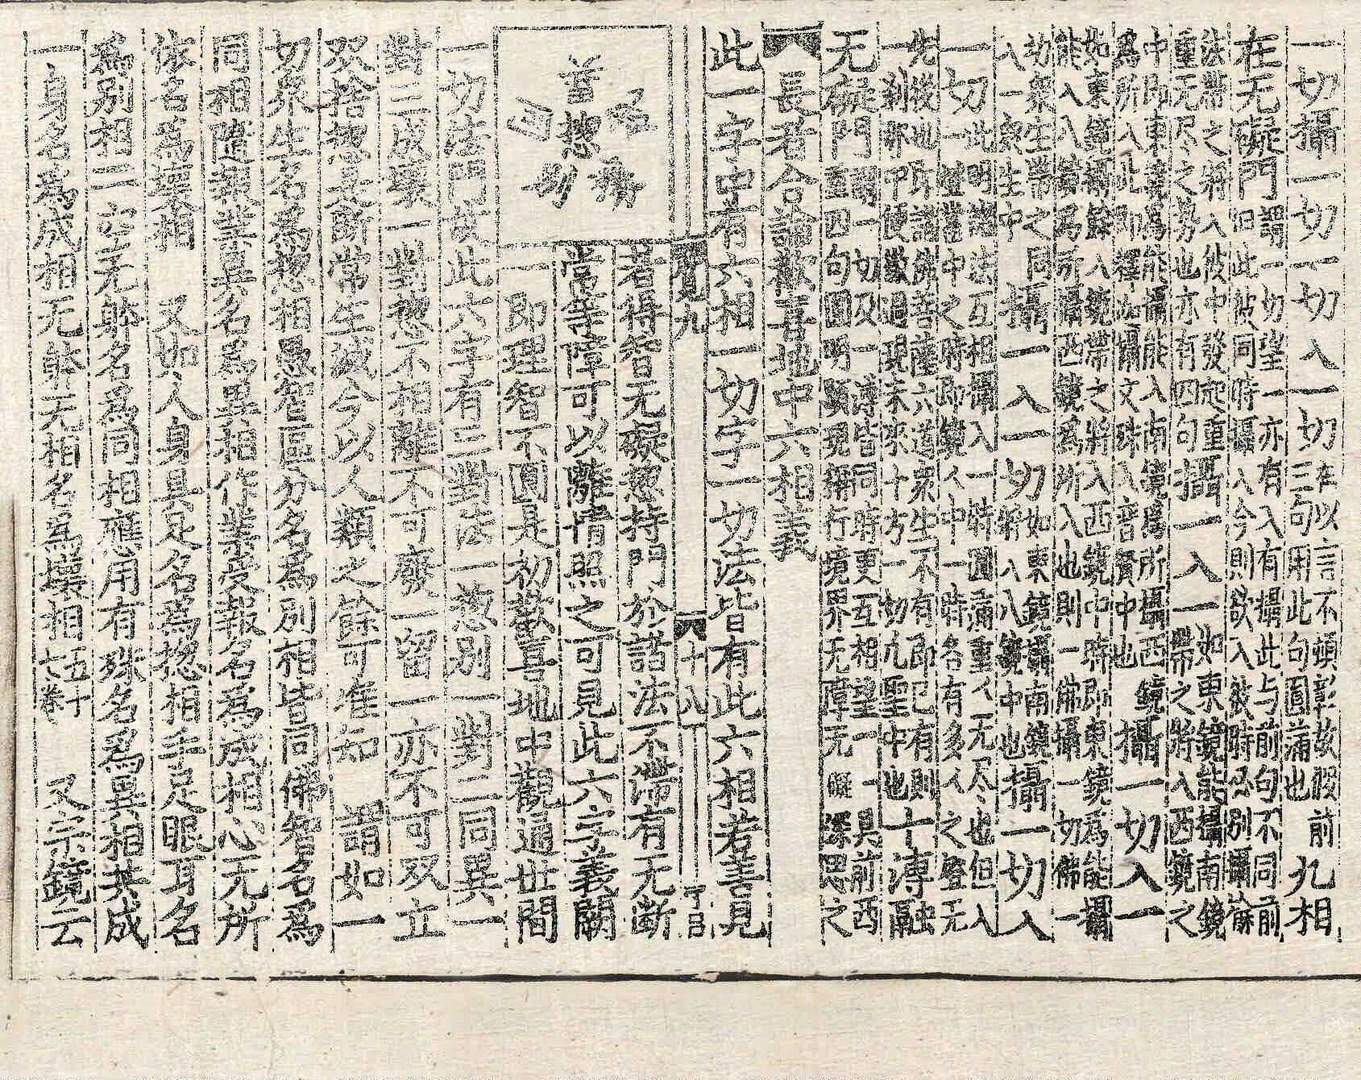 一切攝一切一切入一切本以言不頓彰故假前三句用此句圓蒲也九相
在无礙門謂一切望一亦有入有攝此与前句不同前旧此彼同時攝入今則欲入彼時必別攝餘
法帶之將入彼中發起重重无尽之勢也亦有四句攝一入一如東鏡能攝南鏡帶之將入西鏡之
中即東鏡為能攝能入南鏡為所攝西鏡為所入此即釋迦攝文殊入普賢中也攝一切入一
如東鏡攝餘八鏡帶之將入西鏡中時即東鏡為能攝能入八鏡為所攝西鏡為所入也則一佛攝一切佛一
切衆生帶之同入一衆生中攝一入一切如東鏡攝南鏡將入八鏡中也攝一切入
一切此明諸法互相攝入一時圓滿重重无尽也但入一燈鏡中之時即鏡中一時各有多之燈无
先後也即諸佛菩薩六道衆生不有即已有則一刹那中便徹過現未來十方一切凢聖中也十溥融
无礙門謂一切及一溥皆同時更互相望一一具前西重四句圓明顯現稱行境界无障无礙深思之
長者合論歡喜地中六相義
此一字中有六相一切字一切法皆有此六相若善見
九 十八
惣 別
若得智无礙惣持門於諸法不滯有无断
常等障可以離情照之可見此六字義闕
一即理智不圓是初歡喜地中觀通世間
一切法門故此六字有三對法一惣別一對二同異一
對三成壞一對惣不相離不可廢一留一亦不可双立
双捨惣具断常生滅今以人類之餘可准知 謂如一
切衆生名為惣相愚智區分名為別相皆同佛智名為
同相隨報業異名為異相作業受報名為成相心无所
依名為壞相 又如人身具足名為惣相手足眼耳名
為別相一心无躰名為同相應用有殊名為異相共成
一身名為成相无躰无相名為壞相五十七卷 又宗鏡云